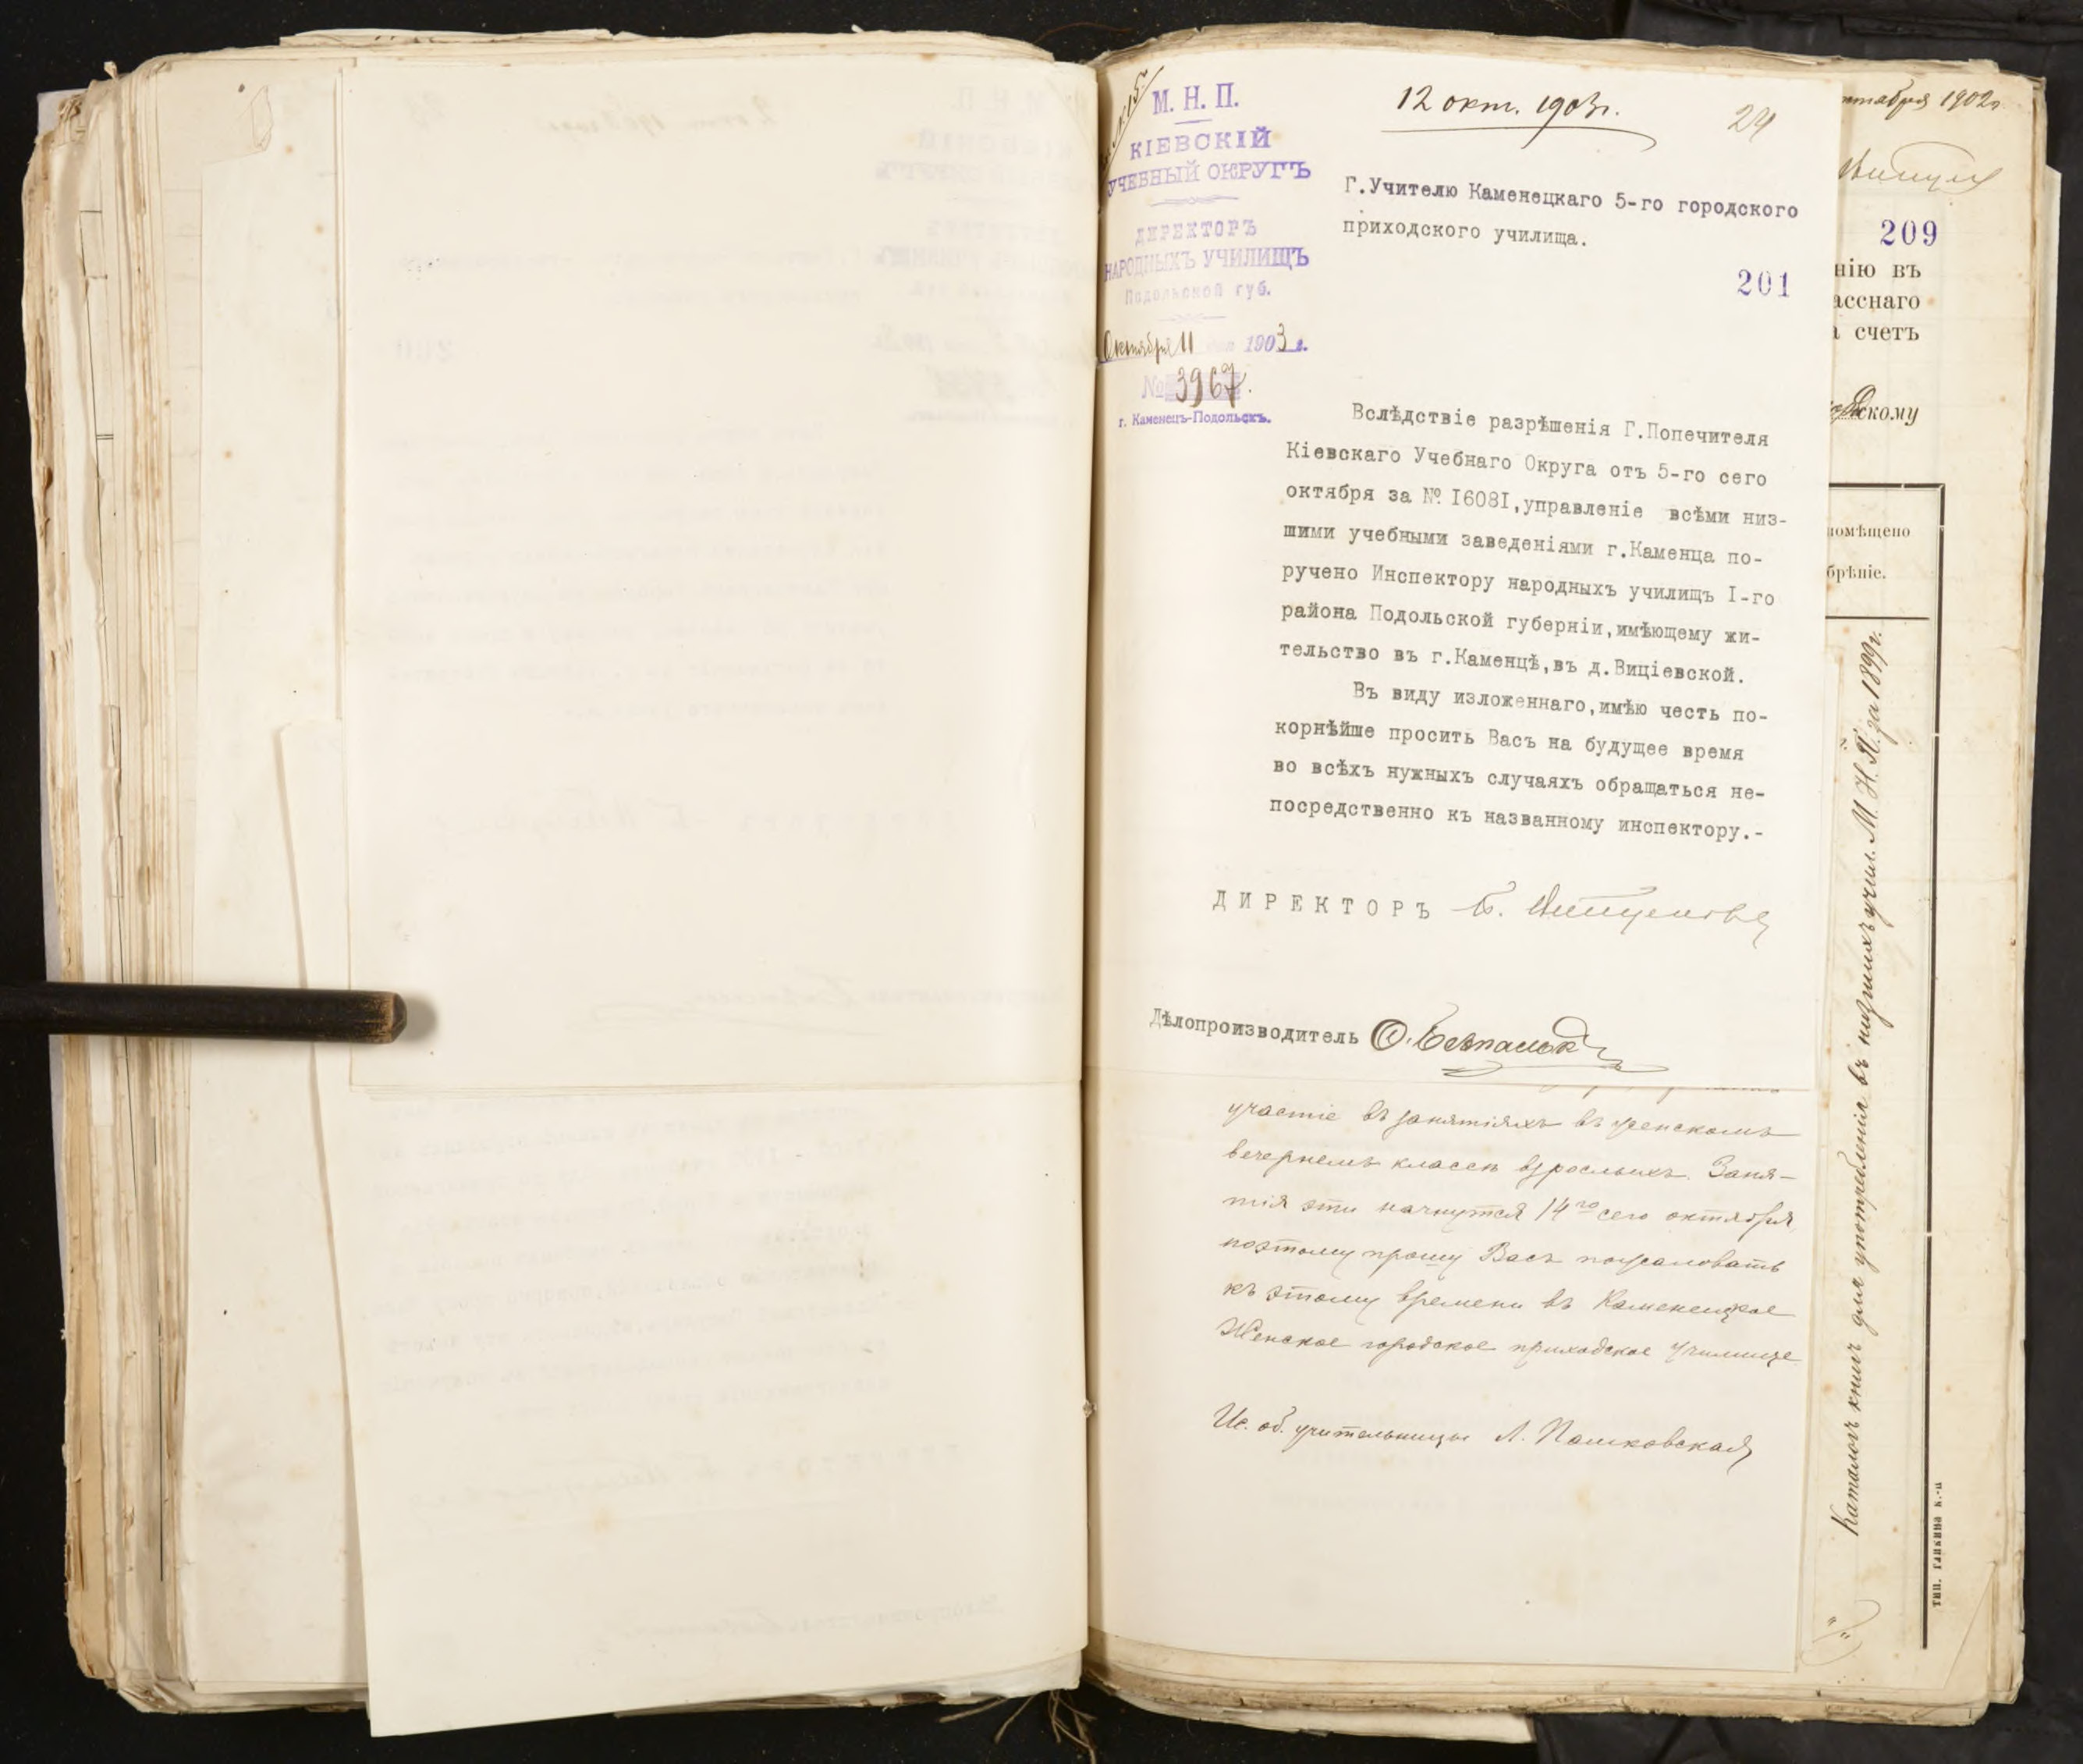 М. Н. П.
КІЕВСКІЙ
УЧЕБНЫЙ ОКРУГЪ
ДИРЕКТОРЪ
НАРОДНЫХЪ УЧИЛИЩЪ
Подольской губ.
Октября 11 1903 г.
№ 3967.
г. Каменецъ-Подольскъ.
12 окт. 1903г.
24
Г.Учителю Каменецкаго 5-го городского
приходского училища.
201
Вслѣдствіе разрѣшенія Г.Попечителя
Кіевскаго Учебнаго Округа отъ 5-го сего
октября за № I608I,управленіе всѣми низ-
шими учебными заведеніями г.Каменца по-
ручено Инспектору народныхъ училищъ I-го
района Подольской губерніи,имѣющему жи-
тельство въ г.Каменцѣ,въ д.Виціевской.
Въ виду изложеннаго,имѣю честь по-
корнѣйше просить Васъ на будущее время
во всѣхъ нужныхъ случаяхъ обращаться не-
посредственно къ названному инспектору.-
ДИРЕКТОРЪ
Дѣлопроизводитель
участіе въ занятіяхъ въ женскомъ
вечернемъ классѣ взрослыхъ. Заня-
тія эти начнутся 14го сего октября,
поэтому прошу Васъ пожаловать
къ этому времени въ Каменецкое
Женское городское приходское училище
Ис. об. учительницы Л. Пашковская
тября 1902г.
209
нію въ
асснаго
а счетъ
скому
помѣщено
брѣніе.
Каталогъ книгъ для употребленія въ низшихъ учил. М. Н. П. за 1899г.
тип. Гликина К.-П